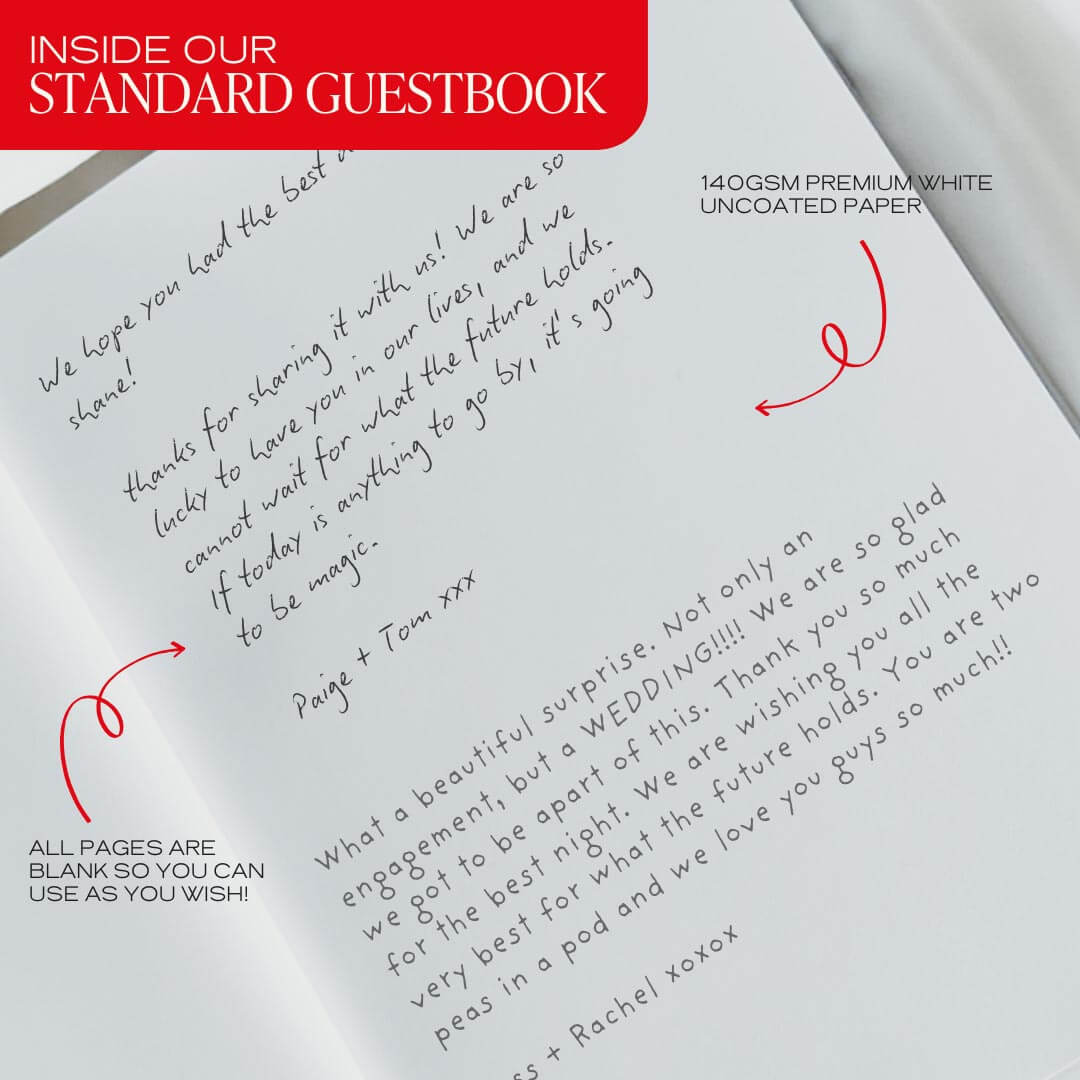 INSIDE OUR
STANDARD GUESTBOOK
140GSM PREMIUM WHITE
UNCOATED PAPER
We hope you had the best
shane!
thanks for sharing it with us! We are so
lucky to have you in our lives, and we
cannot wait for what the future holds.
If today is anything to go by, it's going
to be magic.
Paige + Tom xxx
What a beautiful surprise. Not only an
engagement, but a WEDDING!!!! We are so glad
we got to be apart of this. Thank you so much
for the best night. We are wishing you all the
very best for what the future holds. You are two
peas in a pod and we love you guys so much!!
+ Rachel xoxox
ALL PAGES ARE
BLANK SO YOU CAN
USE AS YOU WISH!